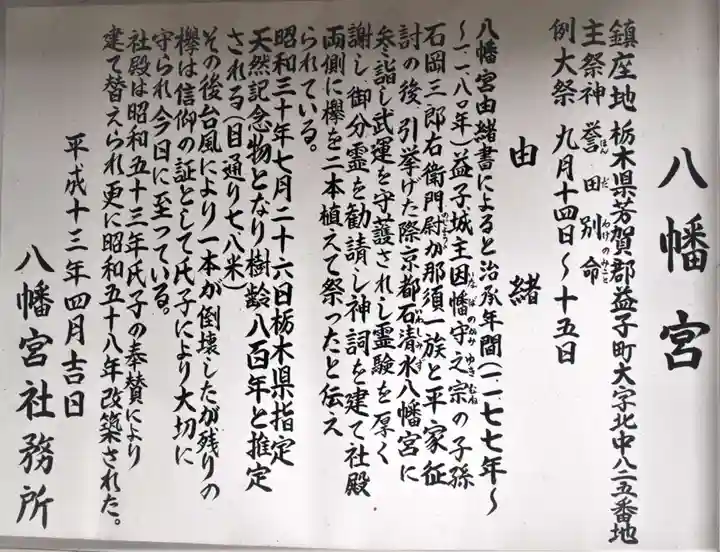 八幡宮
鎮座地 栃木県芳賀郡益子町大字北中八二五番地
主祭神 誉田別命
ほんだわけのみこと
例大祭 九月十四日〜十五日
由緒
八幡宮由緒書によると治承年間(一一七七年〜
〜一一八〇年)益子城主因幡守之宗の子孫
石岡三郎右衛門尉が那須一族と平家征
討の後、引挙げた際京都石清水八幡宮に
参詣し武運を守護されし霊験を厚く
謝し御分霊を勧請し神詞を建て社殿
両側に欅を二本植えて祭ったと伝え
られている。
昭和三十年七月二十六日栃木県指定
天然記念物となり樹齢八百年と推定
される(目通り七、八米)
その後台風により一本が倒壊したが残りの
欅は信仰の証として氏子により大切に
守られ今日に至っている。
社殿は昭和五十三年氏子の奉賛により
建て替えられ更に昭和五十八年改築された。
平成十三年四月吉日
八幡宮社務所